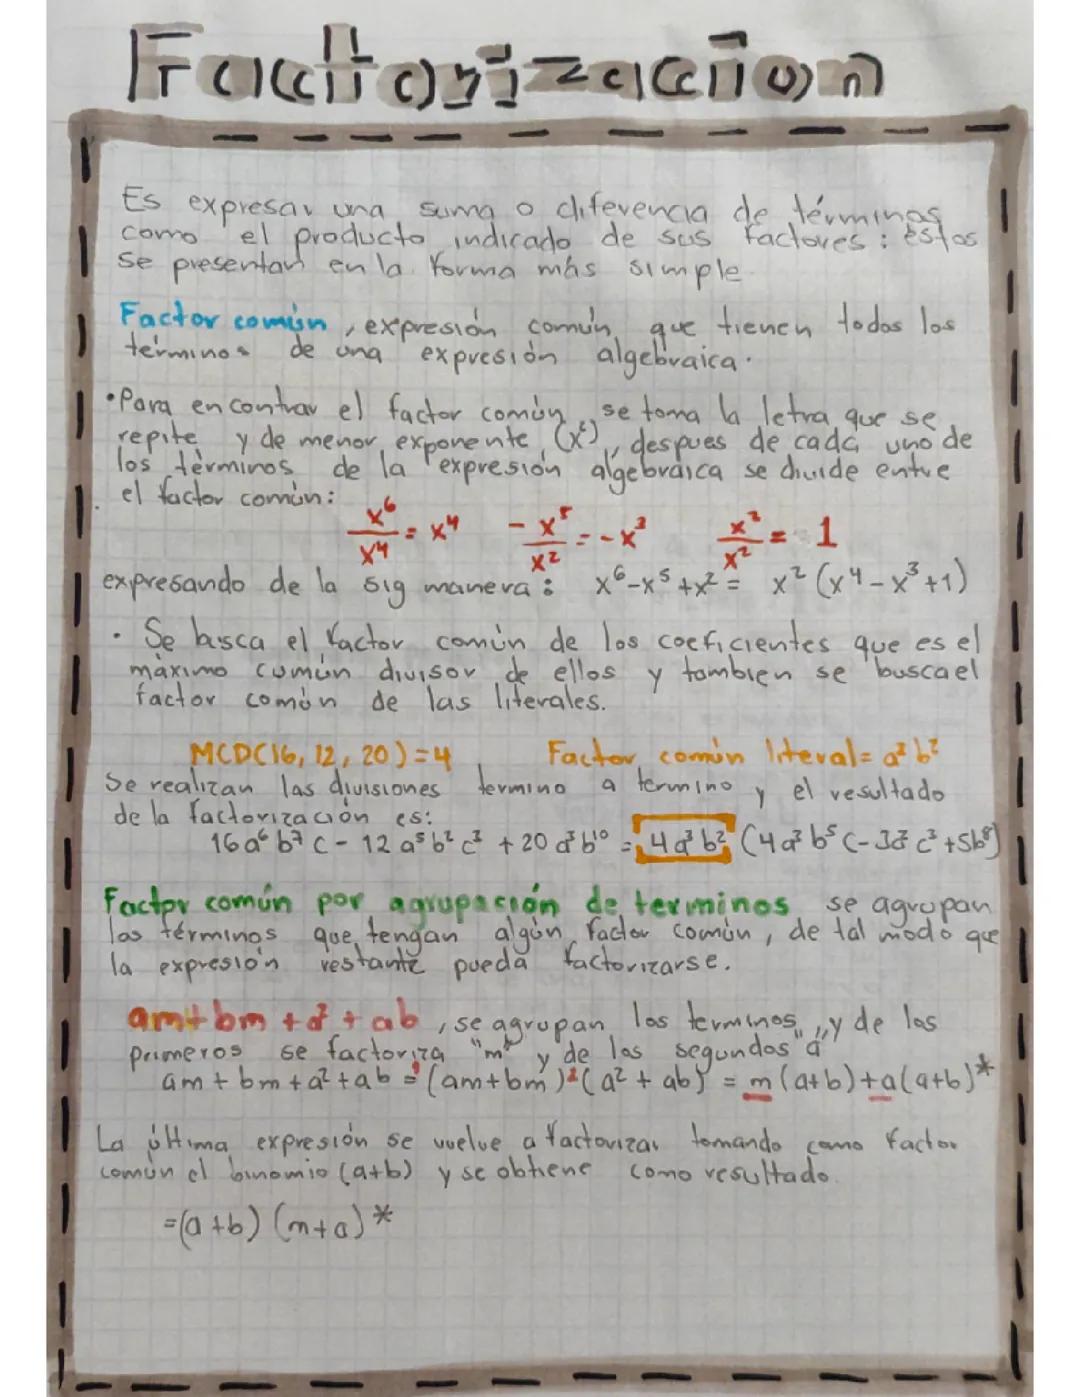 Factorización
Es expresar una suma o diferencia de términos
como el producto indicado de sus factores: estos
se presentan en la forma más simple
Factor común, expresión común que tienen todos los
términos de una expresión algebraica.
•Para encontrar el factor común, se toma la letra que se
repite y de menor exponente (x²), despues de cada uno de
los términos de la expresión algebraica se divide entre
el factor común:
x⁶/x⁴ = x⁴   - x⁵/x² = -x³   x²/x² = 1
expresando de la sig manera: x⁶-x⁵+x² = x²(x⁴-x³+1)
• Se busca el factor común de los coeficientes que es el
máximo común divisor de ellos y tambien se busca el
factor común de las literales.
MCD(16, 12, 20)=4   Factor común literal= a³b²
Se realizan las divisiones termino a termino y el resultado
de la factorización es:
16a⁶b⁷c - 12a⁵b²c³ + 20a³b¹⁰ = 4a³b² (4a³b⁵c-3a²c³+5b⁸)
Factor común por agrupación de terminos se agrupan
los términos que tengan algún factor común, de tal modo que
la expresión restante pueda factorizarse.
am+bm+a²+ab, se agrupan los terminos, y de los
primeros se factoriza "m" y de los segundos "a"
am+bm+a²+ab = (am+bm)+(a²+ab) = m(a+b)+a(a+b)*
La última expresión se vuelve a factorizar tomando como factor
común el binomio (a+b) y se obtiene como resultado.
=(a+b) (m+a)*